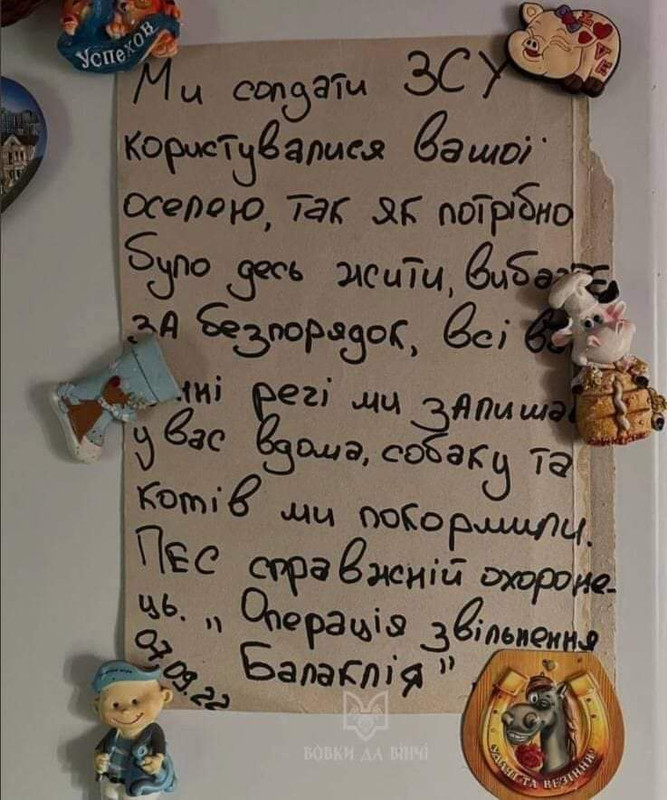 УСПЕХОВ
LOVE
Ми солдати ЗСУ
користувалися вашої
оселею, так як потрібно
було десь жити,
за безпорядок, всі
речі ми
у вас вдома, собаку та
котів ми покормили.
ПЕС справжній охороне-
ць. „Операція звільнення
Балаклія"
07.09.22
ВОВКИ ДА ВІНЧІ
УДАЧІ ТА ВЕЗІННЯ